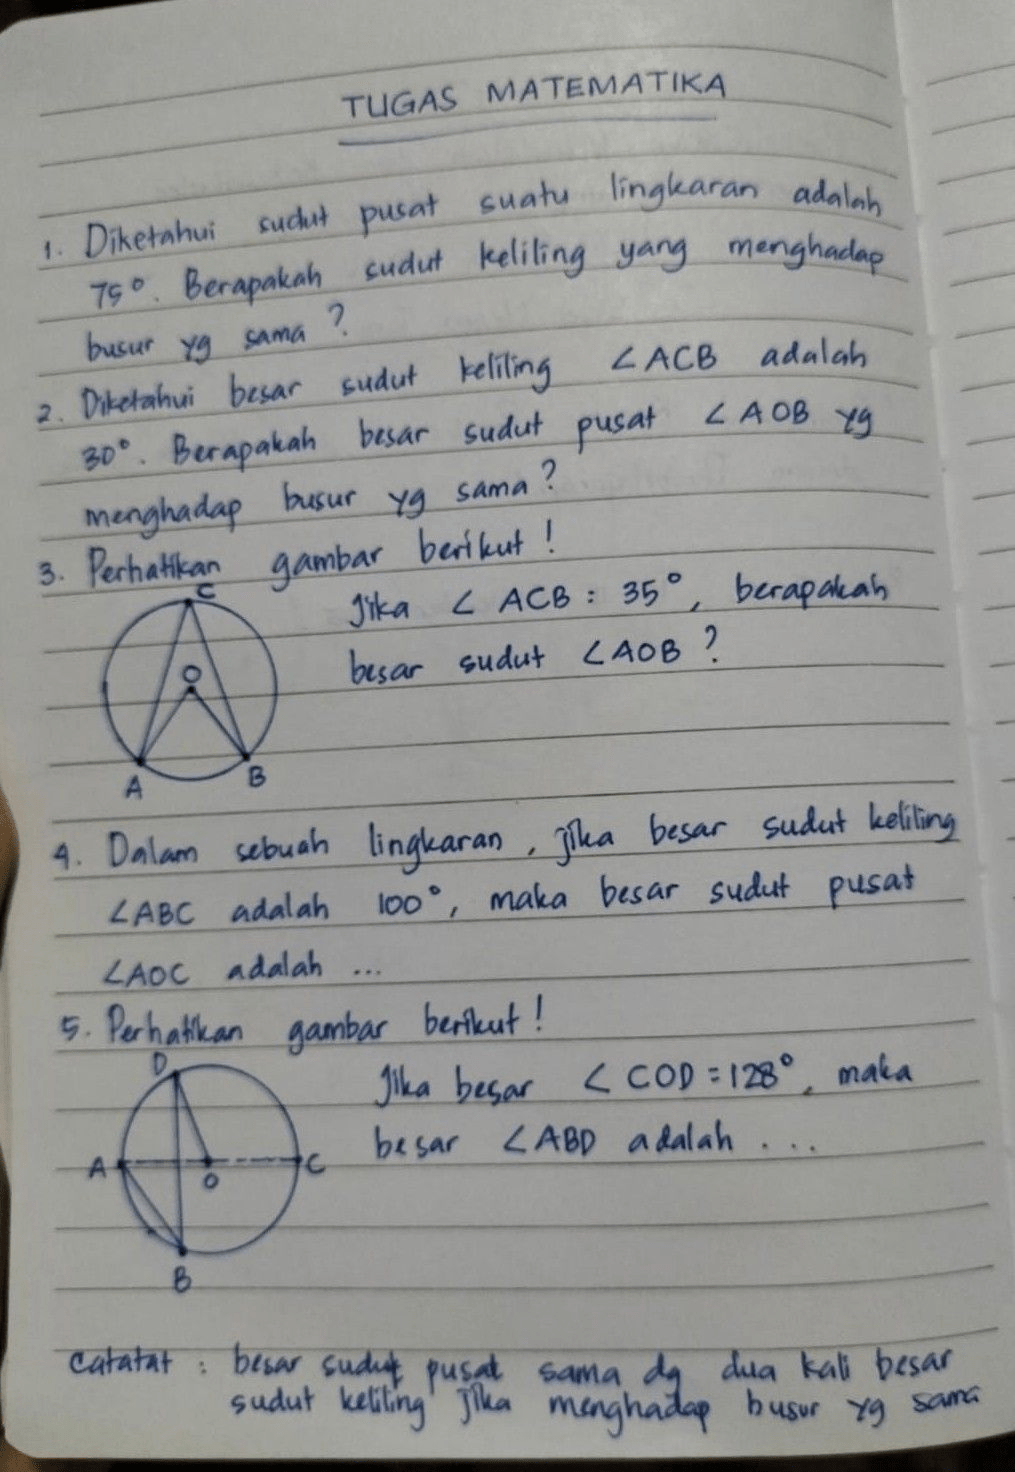 TUGAS MATEMATIKA
1. Diketahui sudut pusat suatu lingkaran adalah
75°. Berapakah sudut keliling yang menghadap
busur yg sama ?
2. Diketahui besar sudut keliling ∠ACB adalah
30°. Berapakah besar sudut pusat ∠AOB yg
menghadap busur yg sama ?
3. Perhatikan gambar berikut !
C
Jika ∠ ACB : 35°, berapakah
besar sudut ∠AOB ?
O
A B
4. Dalam sebuah lingkaran, jika besar sudut keliling
∠ABC adalah 100°, maka besar sudut pusat
∠AOC adalah ...
5. Perhatikan gambar berikut !
D
Jika besar ∠ COD = 128°, maka
besar ∠ABD adalah ....
A O C
B
catatat : besar sudut pusat sama dg dua kali besar
sudut keliling jika menghadap busur yg sama